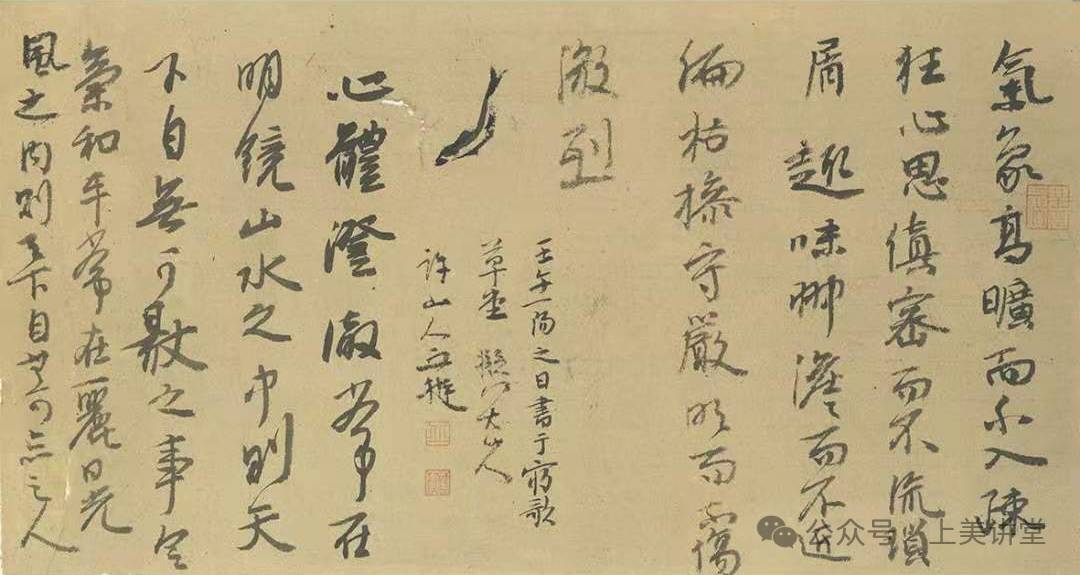 氣象高曠而不入疎
狂心思縝密而不流瑣
屑趣味冲澹而不近
偏枯操守嚴明而不傷
激烈
壬午一陽之日書于寤歌
草堂 擬八大山人
許山人
心體澄澈常在
明鏡山水之中則天
下自無可厭之事意
氣和平常在麗日光
風之内則天下自無可忘之人
公众号 · 上美讲堂